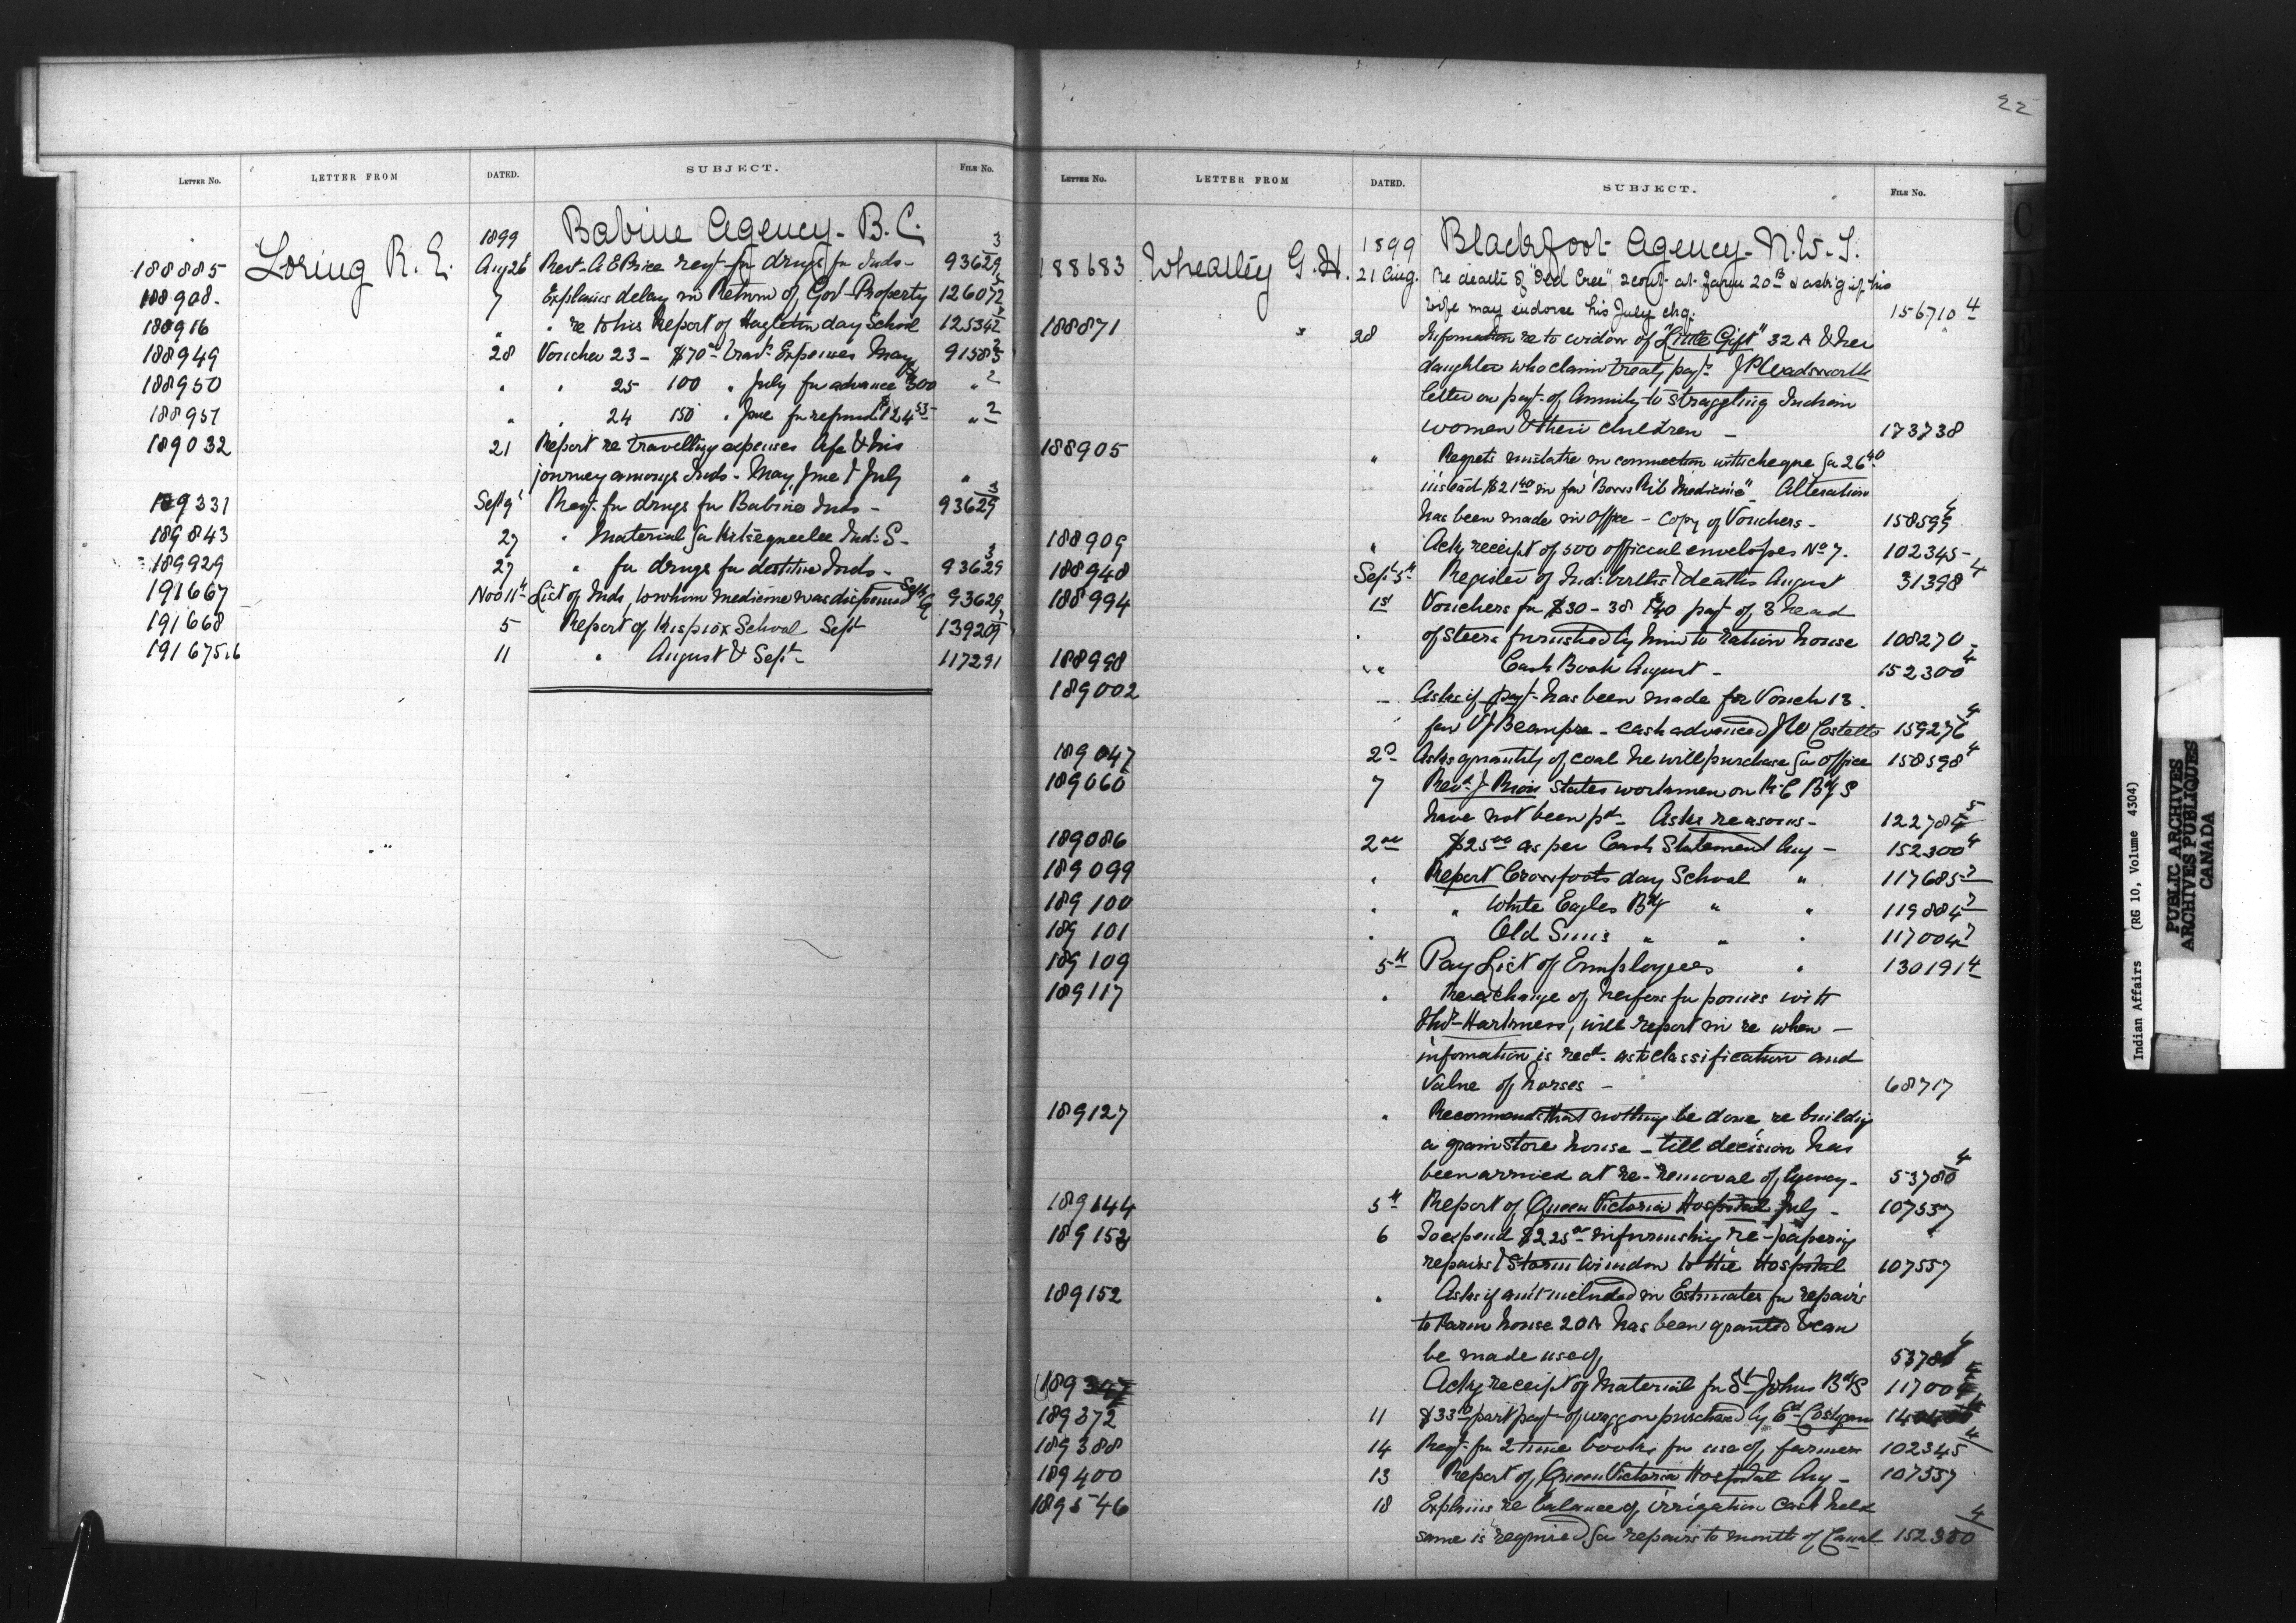 LETTER No. LETTER FROM DATED. SUBJECT. FILE No.
1899 Babine Agency - B.C.
188885 Loring R. E. Aug 26 Rev. A E Price reqt fr drugs fr Inds - 93629 3
188908 7 Explains delay in Return of Gov Property 126072
188916 " " re to his Report of Hazleton day School 125342
188949 28 Voucher 23 - $70 Trav. Expenses May 91583
188950 " " 25 100 " July for advance 300 " 2
188951 " " 24 150 " June for refund " 2
189032 21 Report re travelling expenses &his
journey amongs Inds - May, June & July "
189331 Sept 9 Reqt. fr drugs fr Babine Inds - 93629 3
189843 27 " Material for Kitsegueclee Ind. S-
189929 27 " for drugs for destitute Inds - 93629 3
191667 Nov 11 List of Inds, to whom medicine was dispensed Sept 93629
191668 5 Report of Kispiox School Sept 139209
191675.6 11 " August & Sept - 117291
22
LETTER No. LETTER FROM DATED. SUBJECT. FILE No.
1899 Blackfoot Agency - N.W.T.
188683 Wheatley G. H. 21 Aug. Re death of "Old Cree", scout at Farm 20B & ask'g if his
wife may endorse his July chq. 156710 4
188871 " 28 Information re to widow of "Little Gift" 32 A & her
daughter who claim treaty payt. J P Wadsworth
letter on payt. of Annuity to straggling Indian
women & their children - 173738
188905 " Regrets mistake in connection with cheque for 26 40
instead $21 40 in fav Medicine" Alteration
has been made in Office - Copy of Vouchers - 158599 4
188909 " Ackg receipt of 500 official envelopes No 7. 102345 -
188948 Sept 5th Register of Ind: births & deaths August 31398 4
188994 1st Vouchers for $30 - 38 & 40 payt of 3 head
of steers furnished by him to ration house 108270 -
188998 " " Cash Book August - 152300 4
189002 - Asks if payt. has been made for Vouch 13.
fav V J Beaupre - cash advanced J W Costello 159276 4
189047 2d Asks quantity of coal he will purchase for Office 158598 4
189060 7 Revd. J Riou states workmen on R.C Bdg S
have not been pd. Asks reasons - 122784 5
189086 2nd $25 00 as per Cash Statement Aug - 152300 4
189099 " Report Crowfoots day School " 117685 7
189100 " " White Eagles Bdg " " 119884 7
189101 " Old Suns " " " 117004 7
189109 5th Pay List of Employees " 130191 4
189117 " Re exchange of heifers for ponies with
Harkness, will report in re when -
information is recd. as to classification and
value of horses - 68717
189127 " Recommends that nothing be done re building
a grain store house - till decision has
been arrived at re - removal of Agency - 53780 4
189144 5th Report of Queen Victoria Hospital July - 107557
189153 6 To expend $225 00 in furnishing re-papering
repairs & Storm window to the Hospital 107557
189152 " Asks if amt included in Estimates for repairs
to Farm house 20A has been granted & can
be made use of 53780 4
189347 Ackg receipt of Material for St. Johns Bdg S 117004
189372 11 $33 part payt of waggon purchased by Ed. Costigan
189388 14 Reqt. for 2 time books for use of farmer 102345 4
189400 13 Report of Queen Victoria Hospital Aug - 107557
189546 18 Explains re balance of irrigation cash held
same is required for repairs to mouth of Canal 152300 4
Indian Affairs (RG 10, Volume 4304)
PUBLIC ARCHIVES
ARCHIVES PUBLIQUES
CANADA